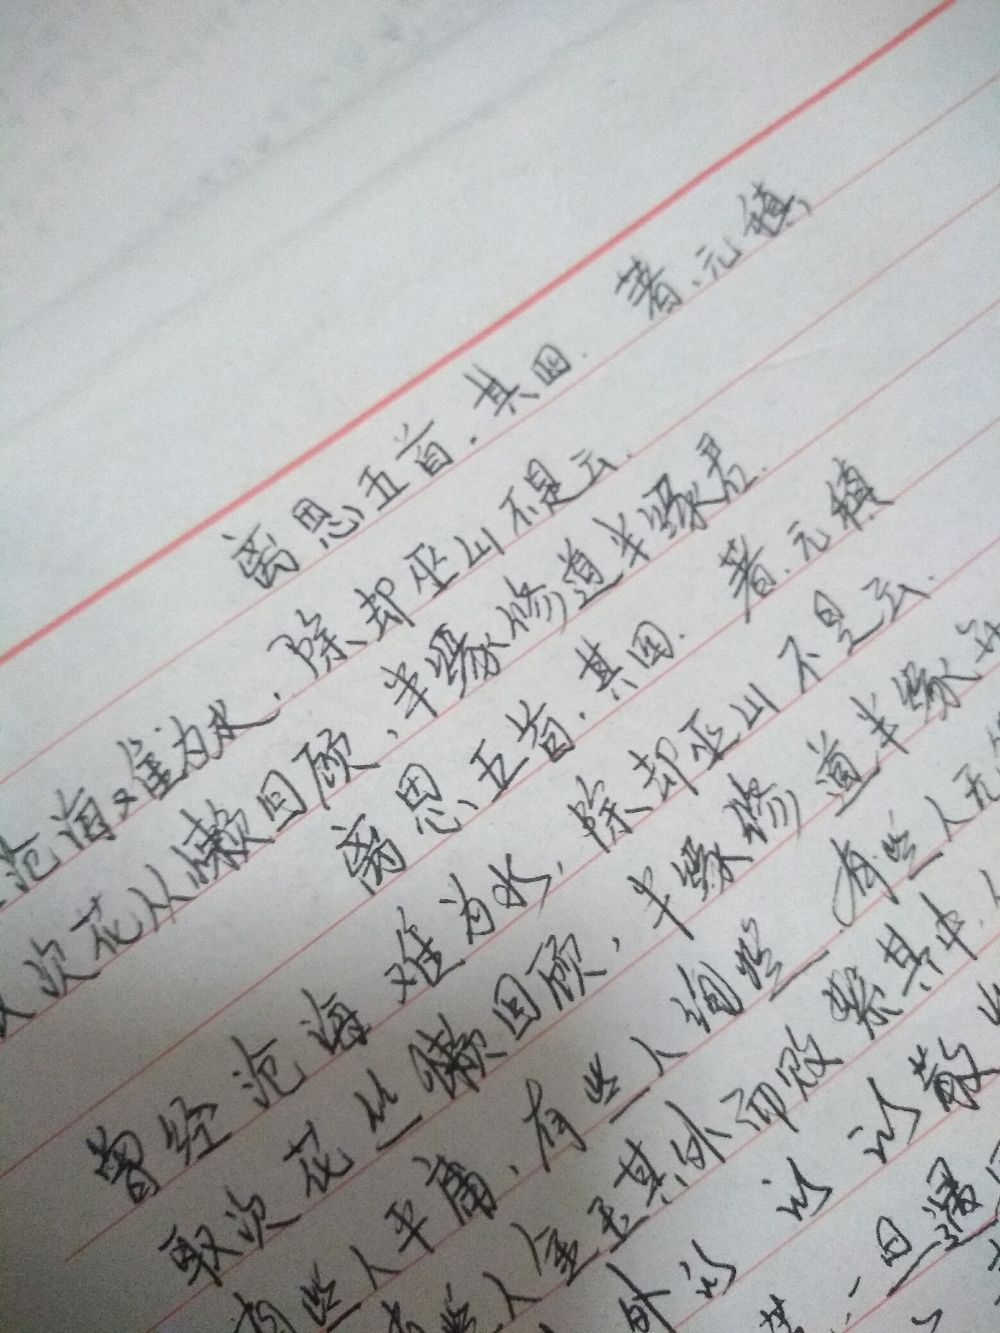 离思五首．其四． 著、元稹
沧海难为水．除却巫山不是云．
次花从懒回顾、半缘修道半缘君．
离思五首．其四． 著、元稹
曾经沧海难为水，除却巫山不是云．
取次花丛懒回顾，半缘修道半缘
有些人平庸、有些人绚烂 有些人
些人金玉其外而败絮其中．
外以 以 以 散
一旦